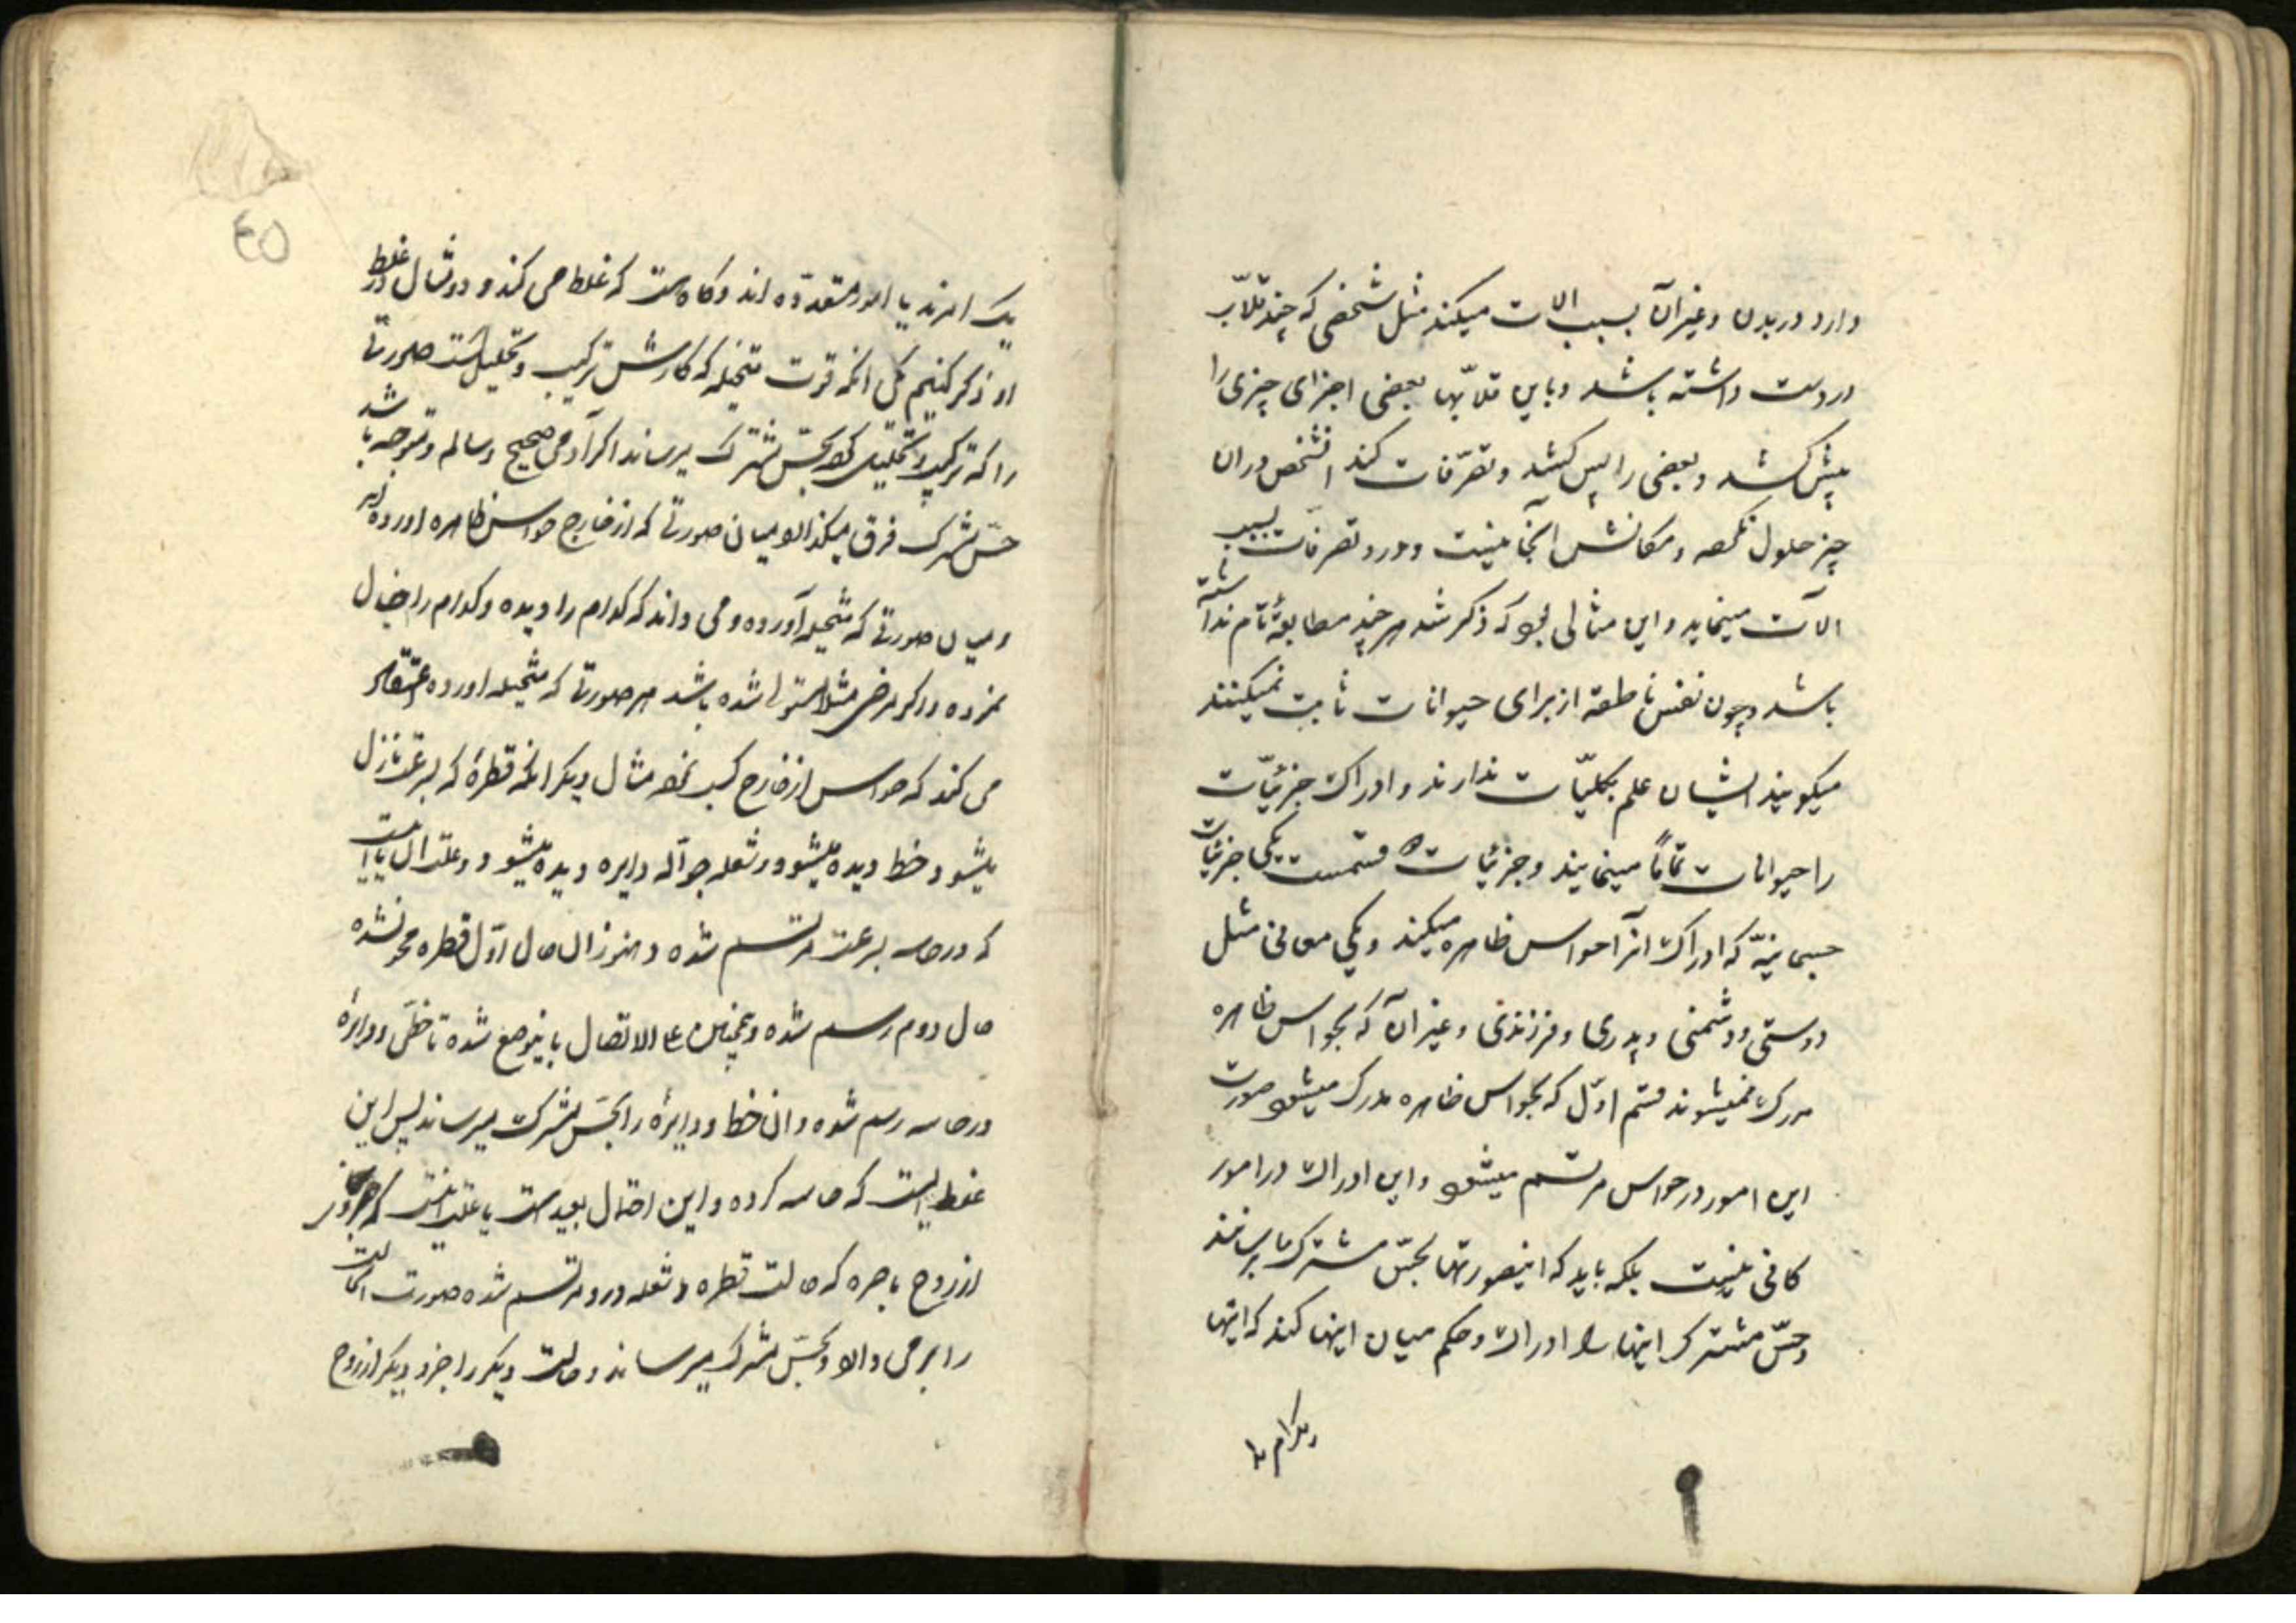 دارد در بدن و غیر آن بسبب الات میکند مثل شخصی که چند قلاّب
در دست داشته باشد و باین قلاّبها بعضی اجزای چیزی را
پیش کشد و بعضی را پس کشد و تصرّفات کند انشخص در ان
چیز حلول نکرده و مکانش آنجا نیست و در و تصرفات بسبب
الآت مینماید و این مثالی بود که ذکر شد هر چند مطابقهٔ تام نداشته
باشد و چون نفس ناطقه از برای حیوانات ثابت نمیکنند
میکویند ایشان علم بکلیّات ندارند و ادراک جزئیّات
را حیوانات تماماً مینمایند و جزئیات قسمست یکی جزئیات
جسمانیّه که ادراک آنرا حواس ظاهره میکند و یکی معانی مثل
دوستی و دشمنی و پدری و فرزندی و غیر آن که بحواس ظاهره
مدرک نمیشوند قسم اوّل که بحواس ظاهره مدرک میشود صورت
این امور در حواس مرتسم میشود و این ادراک در امور
کافی نیست بلکه باید که اینصورتها بحسّ مشترک برسانند
و حسّ مشترک اینها را ادراک و حکم میان اینها کند که اینها
یک امرند یا امور متعدّده اند و کاه هست که غلط می کند و دو مثال در غلط
او ذکر کنیم یکی انکه قوت متخیله که کارش ترکیب و تحلیل است صورتی
را که ترکیب و تحلیل کرده بحسّ مشترک میرساند اکر آدمی صحیح و سالم و متوجه باشد
حسّ مشترک فرق میکند او میان صورتی که از خارج حواس ظاهره اورده اند
و میان صورتی که متخیله آورده و می داند که کدام را دیده و کدام را خیال
نموده و اکر مرضی مثلا مستولی شده باشد هر صورتی که متخیله اورده اعتقاد
می کند که حواس از خارج کسب نموده مثال دیکر انکه قطرهٔ که بسرعت نازل
میشود خط دیده میشود و شعله جوّاله دایره دیده میشود و علت ان یا اینست
که در حاسه بسرعت مرتسم شده و هنوز ان حال اوّل قطره محو نشده
حال دوم رسم شده و همچنین علی الاتصال باینوضع شده تا خطی و دایرهٔ
در حاسه رسم شده و ان خط و دایرهٔ را بحسّ مشترک میرساند پس این
غلطیست که حاسه کرده و این احتمال بعید است یا علت اینست که هر جزوی
از روح باصره که حالت قطره و شعله در و مرتسم شده صورت انحالت
را بر می دارد و بحسّ مشترک میرساند و حالت دیکر را جزو دیکر از روح
٤٥